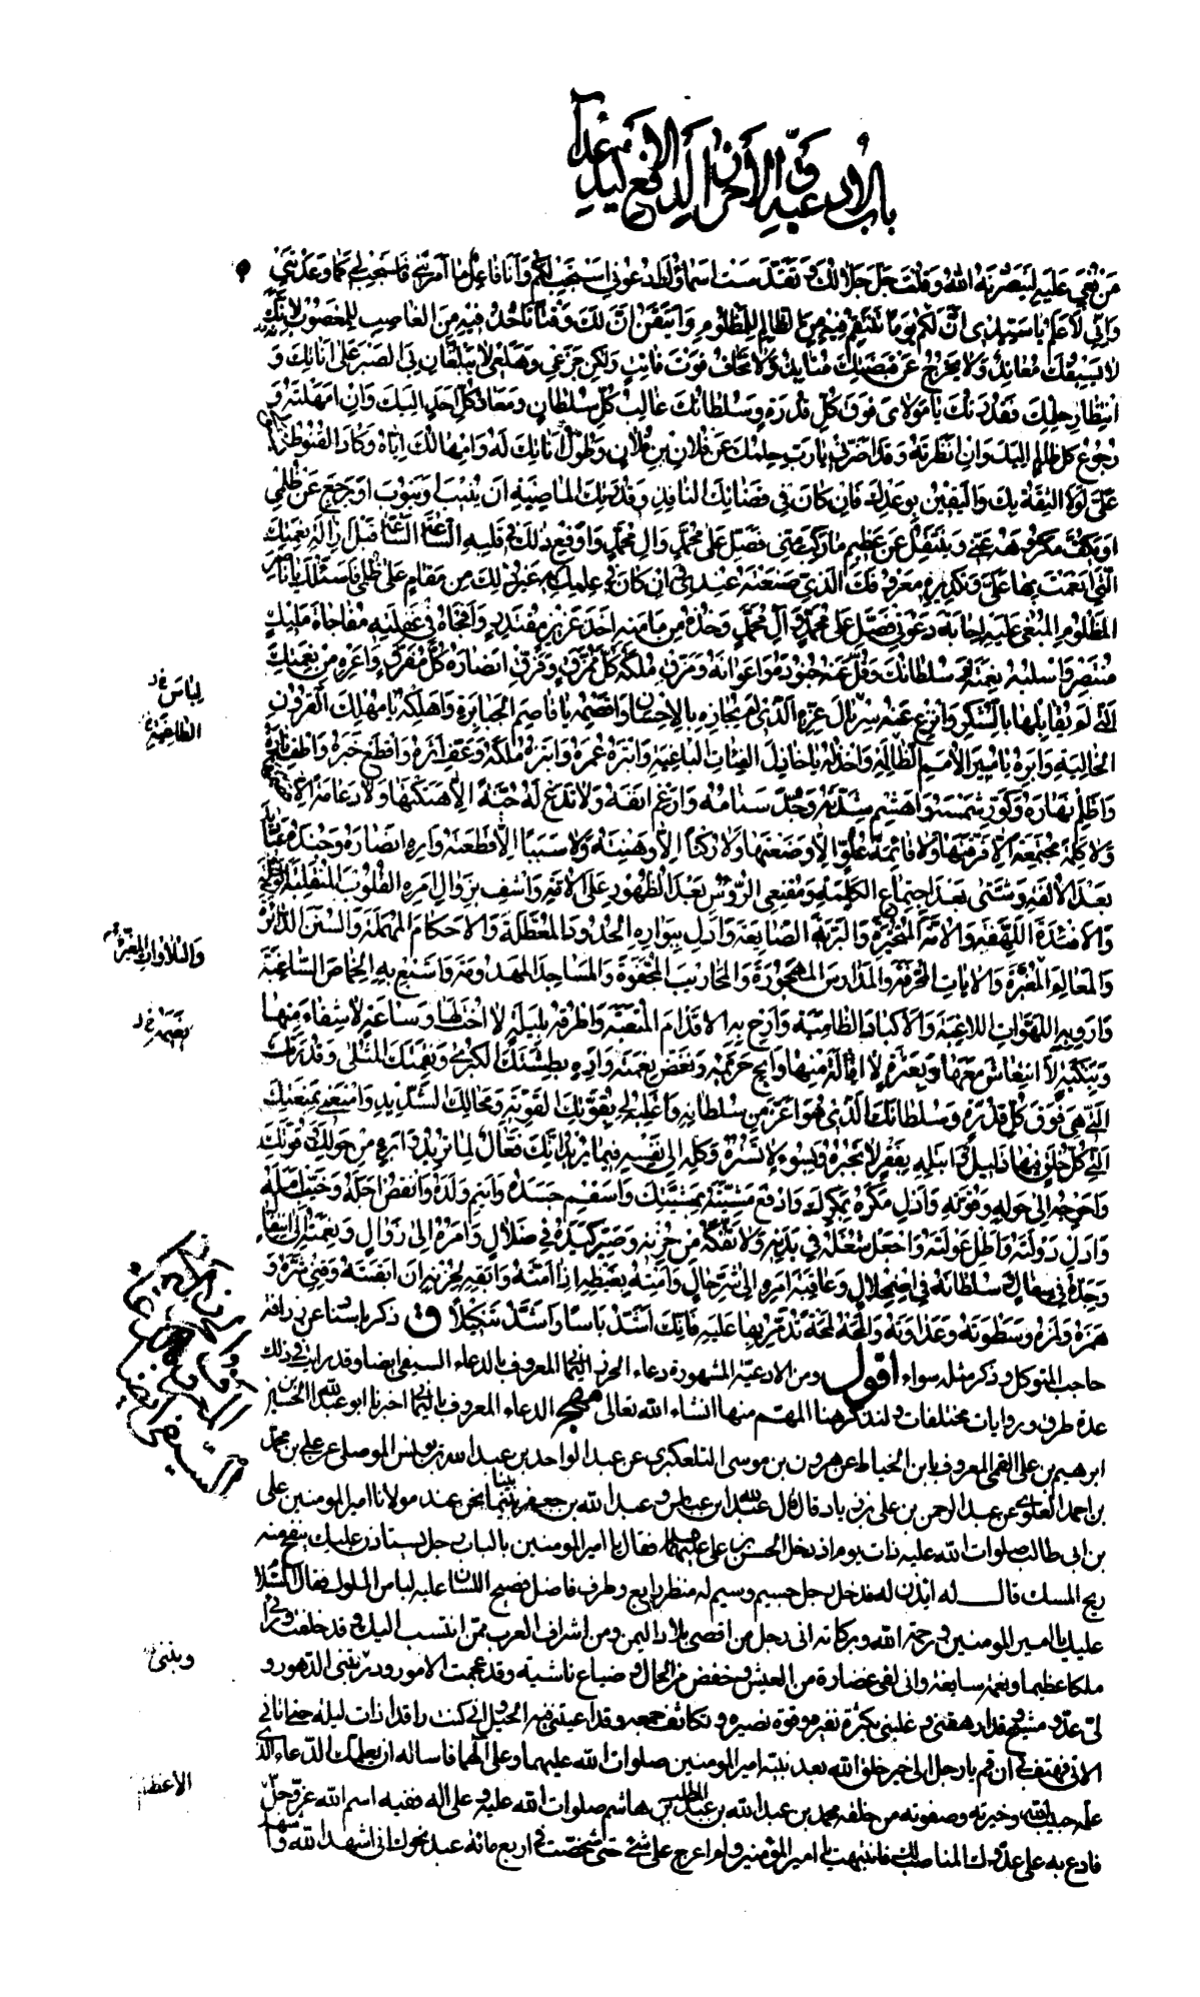 باب الأدعية والأحراز لدفع كيد الأعداء
من بغي عليه لينصرنه الله وقلت جل جلالك وتقدست اسماؤك ادعوني استجب لكم وأنا فاعل ما أمرتني فاستجب لي كما وعدتني
وإني لأعلم يا سيدي أن لكم يوما تنتقم فيه من الظالم للمظلوم وأتيقن أن لك وقتا تأخذ فيه من الغاصب للمغصوب لأنك
لا يسبقك معاند ولا يخرج عن قبضتك منابذ ولا تخاف فوت فائت ولكن جزعي وهلعي لا يبلغان بي الصبر على أناتك و
انتظار حلمك فقدرتك يا مولاي فوق كل قدرة وسلطانك غالب كل سلطان ومعاد كل أحد إليك وإن أمهلته و
رجوع كل ظالم إليك وإن أنظرته وقد أضرني يا رب حلمك عن فلان بن فلان وطول أناتك له وإمهالك إياه وكاد القنوط يستولي
علي لولا الثقة بك واليقين بوعدك فإن كان في قضائك النافذ وقدرتك الماضية أن ينيب أو يتوب أو يرجع عن ظلمي
أو يكف مكروهه عني وينتقل عن عظيم ما ركب مني فصل على محمد وآل محمد وأوقع ذلك في قلبه الساعة الساعة قبل إزالة نعمتك
التي أنعمت بها علي وتكدير معروفك الذي صنعته عندي وإن كان في علمك به غير ذلك من مقام على ظلمي فأسئلك يا ناصر
المظلوم المبغي عليه إجابة دعوتي فصل على محمد وآل محمد وخذه من مأمنه أخذ عزيز مقتدر وافجأه في غفلته مفاجأة مليك
منتصر واسلبه نعمته وسلطانه وفل عنه جنوده وأعوانه ومزق ملكه كل ممزق وفرق أنصاره كل مفرق وأعره من نعمتك
التي لم يقابلها بالشكر وانزع عنه سربال عزه الذي لم يجازه بالإحسان واقصمه يا قاصم الجبابرة وأهلكه يا مهلك القرون
الخالية وأبره يا مبير الأمم الظالمة واخذله يا خاذل الفئات الباغية وابتر عمره وابتز ملكه وعف أثره واقطع خبره وأطف ناره
وأظلم نهاره وكور شمسه واهشم شدته وجذ سنامه وأرغم أنفه ولا تدع له جنة إلا هتكتها ولا دعامة إلا قصمتها
ولا كلمة مجتمعة إلا فرقتها ولا قائمة علو إلا وضعتها ولا ركنا إلا وهنته ولا سببا إلا قطعته وأره أنصاره وجنده عباديد
بعد الألفة وشتى بعد اجتماع الكلمة ومقنعي الرؤس بعد الظهور على الأمة واشف بزوال أمره القلوب المنقلبة الوجلة
والأفئدة اللهفة والأمة المتحيرة والبرية الضايعة وأدل ببواره الحدود المعطلة والأحكام المهملة والسنن الداثرة
والمعالم المغيرة والآيات المحرفة والمدارس المهجورة والمحاريب المجفوة والمساجد المهدومة وأشبع به الخماص الساغبة
وأرو به اللهوات اللاغبة والأكباد الظامية وأرح به الأقدام المتعبة واطرقه بليلة لا أخت لها وساعة لا شفاء منها
وبنكبة لا انتعاش معها وبعثرة لا إقالة منها وأبح حريمه ونغص نعمته وأره بطشتك الكبرى ونقمتك المثلى وقدرتك
التي هي فوق كل قدرة وسلطانك الذي هو أعز من سلطانه واغلبه لي بقوتك القوية ومحالك الشديد وامنعني بمنعتك
التي كل خلق فيها ذليل وابتله بفقر لا تجبره وبسوء لا تستره وكله إلى نفسه فيما يريد إنك فعال لما تريد وأبره من حولك وقوتك
وأحوجه إلى حوله وقوته وأذل مكره بمكرك وادفع مشيته بمشيتك وأسقم جسده وأيتم ولده وانقص أجله وخيب أمله
وأدل دولته وأطل عولته واجعل شغله في بدنه ولا تفكه من حزنه وصير كيده في ضلال وأمره إلى زوال ونعمته إلى انتقال
وجده في سفال وسلطانه في اضمحلال وعاقبة أمره إلى شر حال وأمته بغيظه إذا أمته وأبقه لحزنه إن أبقيته وقني شره و
همزه ولمزه وسطوته وعداوته والمحه لمحة تدمر بها عليه فإنك أشد بأسا وأشد تنكيلا ق ذكر بإسنادنا عن زرافة
حاجب المتوكل وذكر مثله سواء أقول ومن الادعية المشهورة دعاء الحرز اليماني المعروف بالدعاء السيفي أيضا وقد رايته في ذلك
عدة طرق وروايات مختلفات ولنذكر هنا المهم منها انشاء الله تعالى مهج الدعاء المعروف باليماني اخبرنا ابو عبد الله الحسين بن
ابرهيم بن علي القمي المعروف بابن الخياط عن هرون بن موسى التلعكبري عن عبد الواحد بن عبد الله بن يونس الموصلي عن علي بن محمد
بن احمد العلوي عن عبد الرحمن بن علي بن زياد قال قال عبد الله ابن عباس وعبد الله بن جعفر بينما نحن عند مولانا امير المومنين علي
بن ابي طالب صلوات الله عليه ذات يوم اذ دخل الحسن بن علي عليهما السلام فقال يا امير المومنين بالباب رجل يستاذن عليك ينفح منه
ريح المسك قال له ايذن له فدخل رجل جسيم وسيم له منظر رايع وطرف فاضل فصيح اللسان عليه لباس الملوك فقال السلام
عليك يا امير المومنين ورحمة الله وبركاته اني رجل من اقصى بلاد اليمن ومن اشراف العرب ممن انتسب اليك وقد خلفت ورائي
ملكا عظيما ونعمة سابغة واني لفي غضارة من العيش وخفض من الحال وضياع ناشية وقد عجمت الامور ودربتني الدهور و
لي عدو مشيح وقد ارهقني وغلبني بكثرة نفيره وقوة نصيره وتكاثف جمعه وقد اعيتني فيه الحيل واني كنت راقدا ذات ليلة حتى اتاني
الاتي فهتف بي ان قم يا رجل الى خير خلق الله بعد نبيه امير المومنين صلوات الله عليهما وعلى آلهما فاساله ان يعلمك الدعاء الذي
علمه حبيب الله وخيرته وصفوته من خلقه محمد بن عبد الله بن عبد المطلب بن هاشم صلوات الله عليه وعلى اله ففيه اسم الله عز وجل
فادع به على عدوك المناصب لك فانتبهت يا امير المؤمنين ولم اعرج على شئ حتى شخصت في اربع مائة عبد نحوك اني اشهد الله واشهد
لباس خ د
الطاغية
والتلاوات المغيرة
نعمته خ د
المعروف
السيفي ايضا
وبنتني
الاعظم